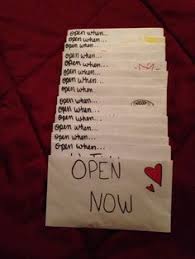 open when...
open when...
open when...
open when...
open when...
open when...
open when...
open when...
open when...
open when...
open when...
open when...
OPEN
NOW